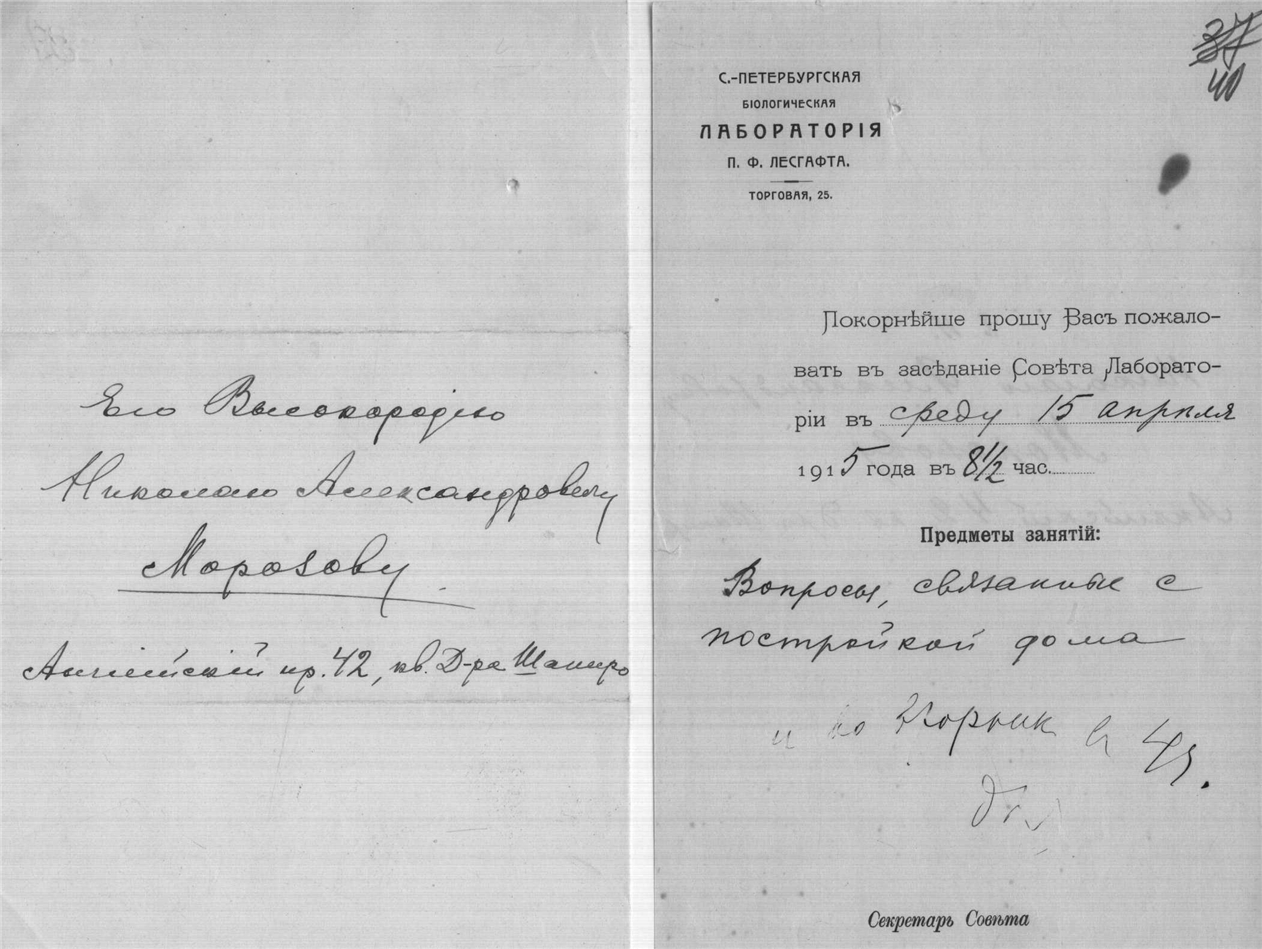 Его Высокородію
Николаю Александровичу
Морозову
Англійскій пр. 42, кв. Д-ра Шапиро
37
40
С.-ПЕТЕРБУРГСКАЯ
БІОЛОГИЧЕСКАЯ
ЛАБОРАТОРІЯ
П. Ф. ЛЕСГАФТА.
ТОРГОВАЯ, 25.
Покорнѣйше прошу Васъ пожало-
вать въ засѣданіе Совѣта Лаборато-
ріи въ среду 15 апрѣля
1915 года въ 8 1/2 час.
Предметы занятій:
Вопросы, связанные с
постройкой дома
и во вторник в 4 ч.
Секретарь Совѣта